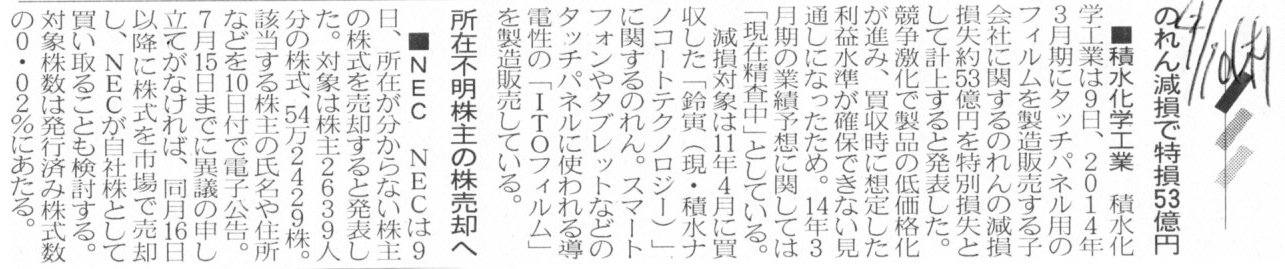 のれん減損で特損53億円
■積水化学工業　積水化
学工業は9日、2014年
3月期にタッチパネル用の
フィルムを製造販売する子
会社に関するのれんの減損
損失約53億円を特別損失と
して計上すると発表した。
競争激化で製品の低価格化
が進み、買収時に想定した
利益水準が確保できない見
通しになったため。14年3
月期の業績予想に関しては
「現在精査中」としている。
　減損対象は11年4月に買
収した「鈴寅(現・積水ナ
ノコートテクノロジー)」
に関するのれん。スマート
フォンやタブレットなどの
タッチパネルに使われる導
電性の「ITOフィルム」
を製造販売している。
所在不明株主の株売却へ
■NEC　NECは9
日、所在が分からない株主
の株式を売却すると発表し
た。対象は株主2639人
分の株式、54万2429株。
該当する株主の氏名や住所
などを10日付で電子公告。
7月15日までに異議の申し
立てがなければ、同月16日
以降に株式を市場で売却
し、NECが自社株として
買い取ることも検討する。
対象株数は発行済み株式数
の0・02%にあたる。